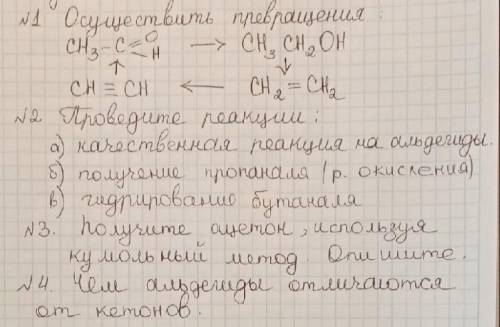 №1 Осуществить превращения:
CH₃-C=O H → CH₃CH₂OH
↑ ↓
CH≡CH ← CH₂=CH₂
№2 Проведите реакции:
а) качественная реакция на альдегиды.
б) получение пропаналя (р. окисления)
в) гидрирование бутаналя
№3. Получите ацетон, используя
кумольный метод. Опишите.
№4. Чем альдегиды отличаются
от кетонов.